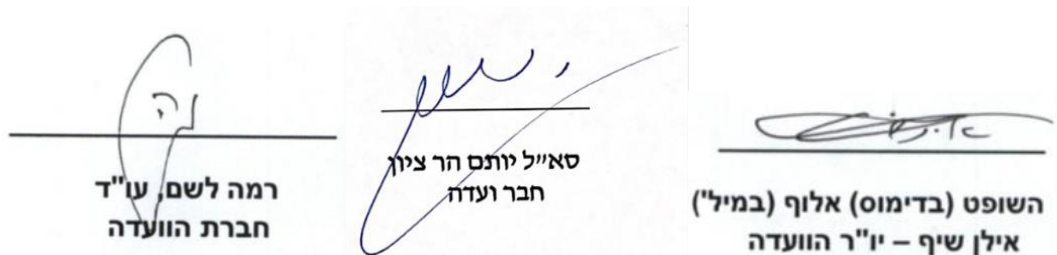 השופט (בדימוס) אלוף (במיל')
אילן שיף – יו"ר הוועדה
סא״ל יותם הר ציון
חבר ועדה
רמה לשם, עו"ד
חברת הוועדה